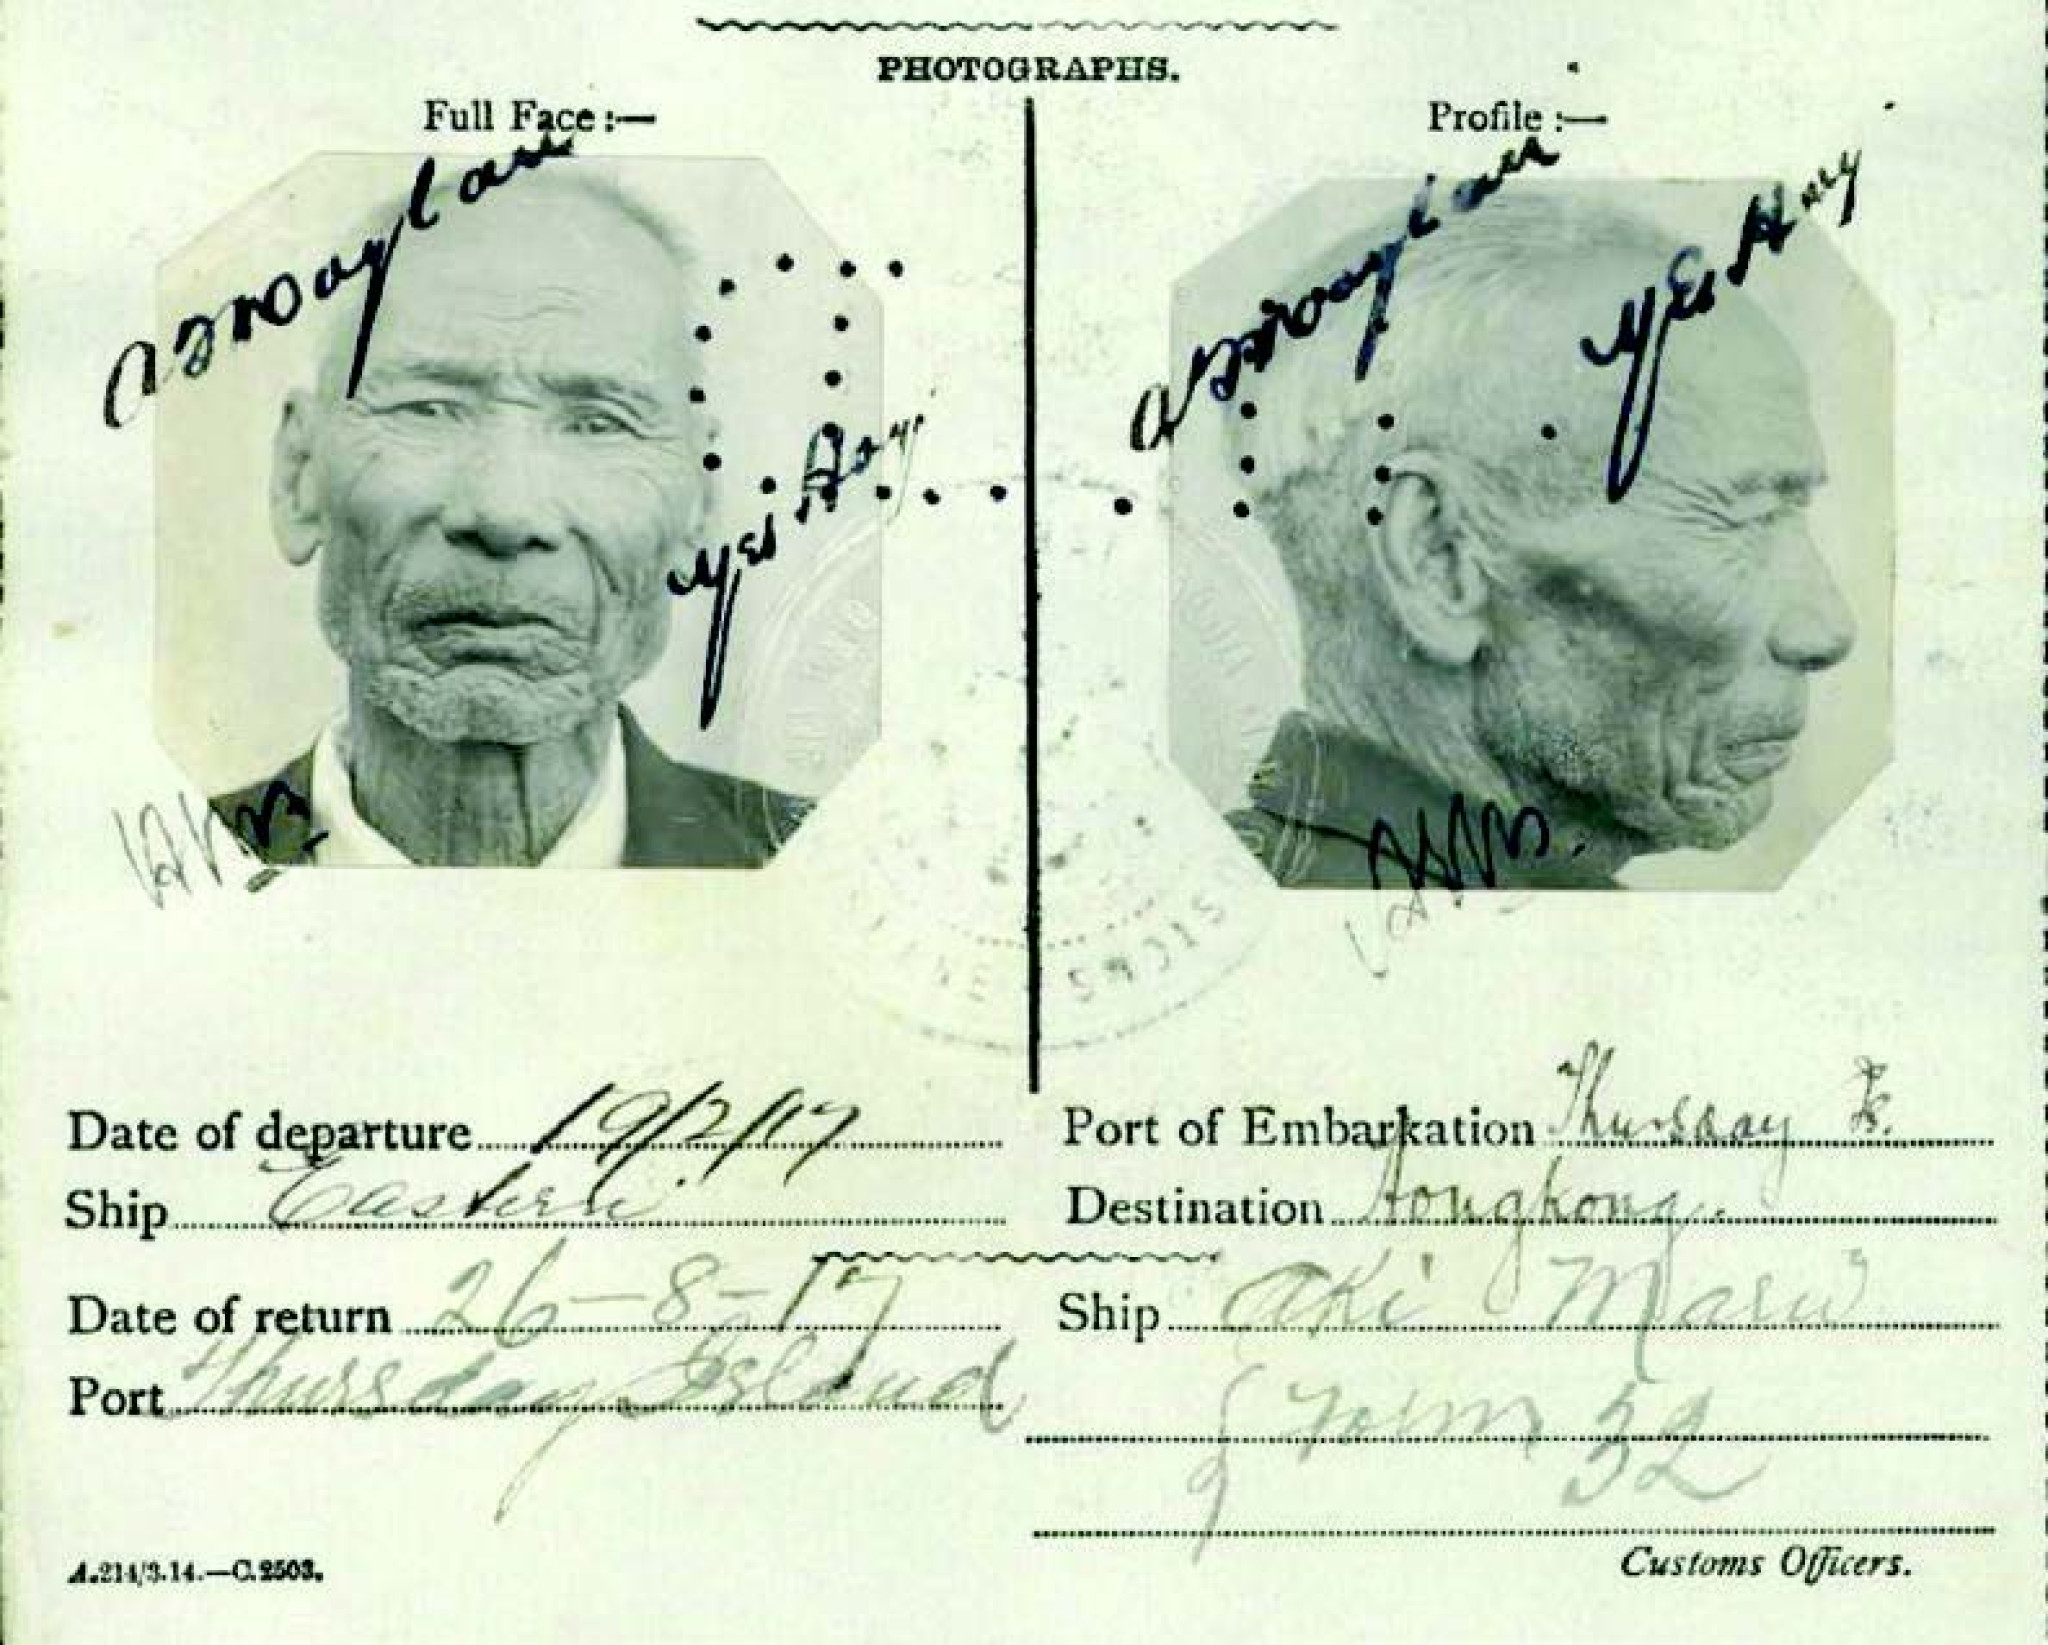 PHOTOGRAPHS.
Full Face:—
Profile:—
Date of departure 19/2/17
Port of Embarkation Thursday Is.
Ship Eastern
Destination Hongkong.
Date of return 26-8-17
Ship Aki Maru
Port Thursday Island
Form 32
A.214/3.14.—C.2503.
Customs Officers.